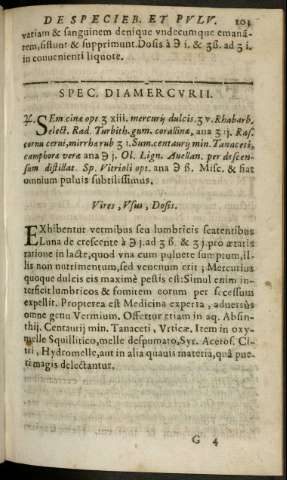 DE SPECIEB. ET PVLV. 103
vatiam & sanguinem denique vndecumque emana-
tem, sistunt & supprimunt. Dosis à ℈ i. & ʒß. ad ʒ i.
in conuenienti liquore.
SPEC. DIAMERCVRII.
♃. SEm cinæ opt ʒ xiii. mercurij dulcis ʒ v. Rhabarb.
Select. Rad. Turbith. gum. corallinæ, ana ʒ ij. Ras.
cornu cerui, mirrhæ rub ʒ i. Sum. centaurij min. Tanaceti,
camphoræ veræ ana ℈ j. Ol. Lign. Auellan. per descen-
sum distillat. Sp. Vitrioli opt. ana ℈ ß. Misc. & fiat
omnium puluis subtilissimus.
Vires, Vsus, Dosis.
EXhibentur vermibus seu lumbricis scatentibus
Luna decrescente à ℈ j. ad ʒ ß. & ʒ j. pro ætatis
ratione in lacte, quod vna cum puluere sumptum, il-
lis non nutrimentum, sed venenum erit; Mercurius
quoque dulcis eis maximè pestis est: Simul enim in-
terficit lumbricos & fomitem eorum per secessum
expellit. Propterea est Medicina experta, aduersus
omne genu Vermium. Offertur etiam in aq. Absin-
thij. Centaurij min. Tanaceti, Vrticæ. Item in oxy-
melle Squillitico, melle despumato, Syr. Acetos. Ci-
tri, Hydromelle, aut in alia quauis materia, quâ pue-
ri magis delectantur.
G 4